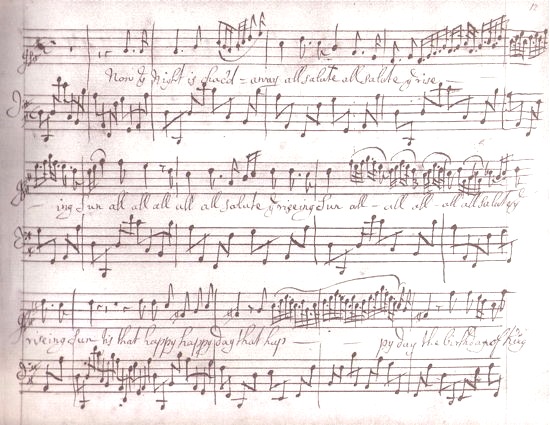 Now yͤ Night is chac'd - away all salute all salute yͤ rise -
- ing Sun all all all all all salute yͤ riseing Sun all - all all - all all salute yͤ
riseing Sun tis that happy happy day that hap — py day the birthday of King